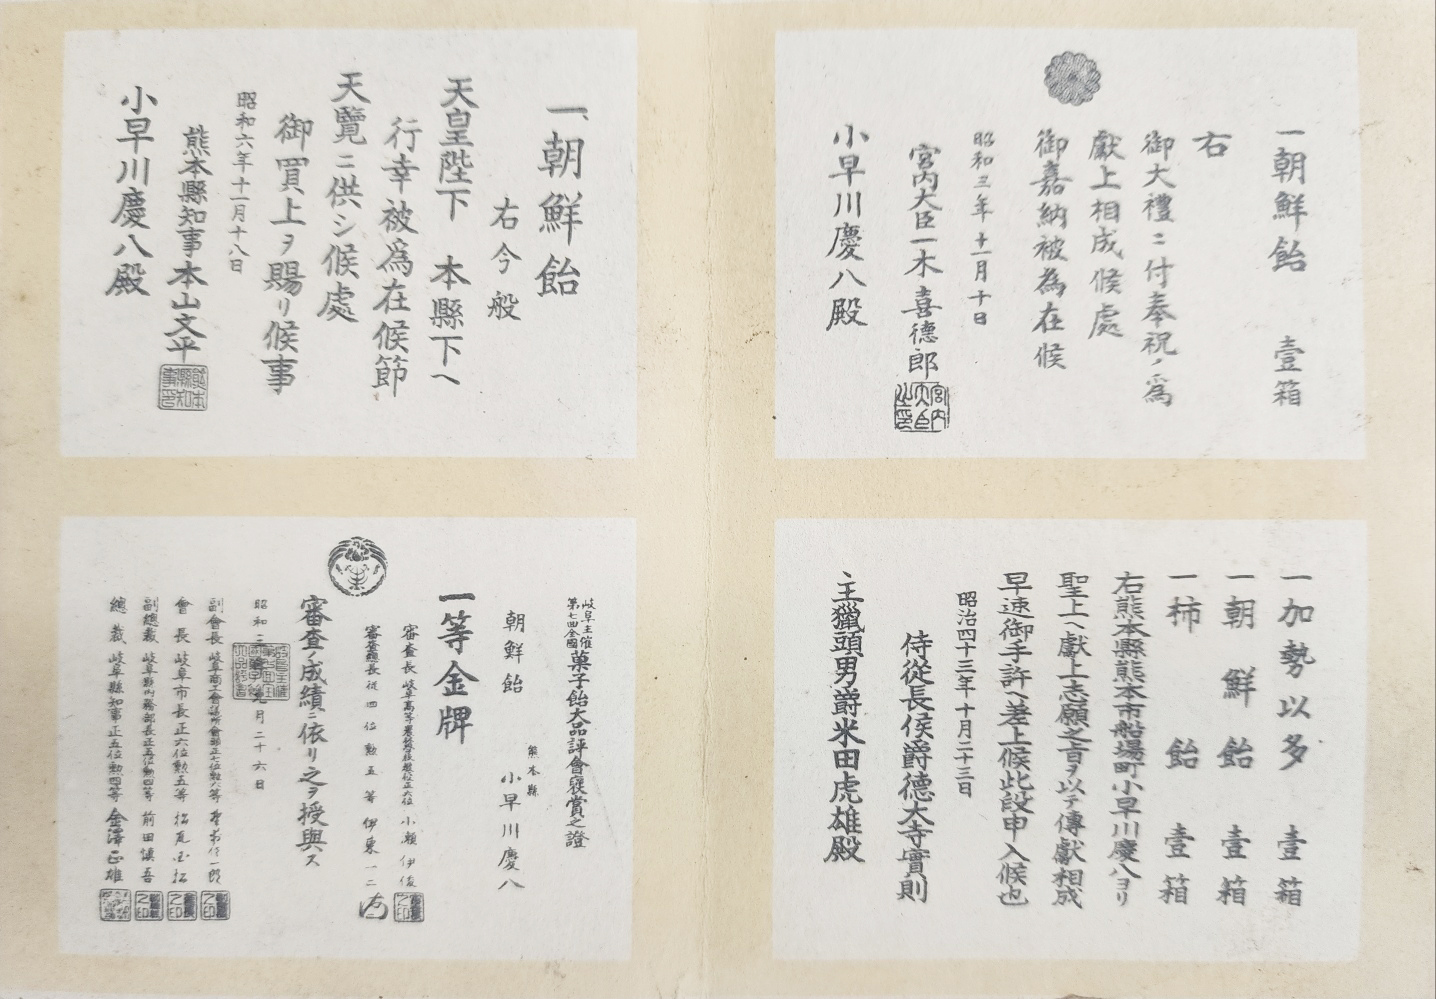 一朝鮮飴 壹箱
右
御大禮ニ付奉祝ノ為
獻上相成候處
御嘉納被為在候
昭和三年十一月十日
宮内大臣一木喜德郎
小早川慶八殿
一、朝鮮飴
右今般
天皇陛下 本縣下ヘ
行幸被為在候節
天覽ニ供シ候處
御買上ヲ賜リ候事
昭和六年十一月十八日
熊本縣知事本山文平
熊本縣知事印
小早川慶八殿
一加勢以多 壹箱
一朝鮮飴 壹箱
一柿飴 壹箱
右熊本縣熊本市船場町小早川慶八ヨリ
聖上ヘ獻上志願之旨ヲ以テ傳獻相成
早速御手許ヘ差上候此段申入候也
明治四十三年十月二十三日
侍從長侯爵德大寺實則
主獵頭男爵米田虎雄殿
岐阜主催第七回全國菓子飴大品評會褒賞之證
朝鮮飴
熊本縣
小早川慶八
一等金牌
審査長 小瀬伊俊
從四位勲五等 伊東一二
審査ノ成績ニ依リ之ヲ授與ス
昭和二年九月二十六日
副會長
會長 岐阜市長正六位勲五等 松尾國松
副總裁 岐阜縣内務部長正五位勲四等 前田愼吾
總裁 岐阜縣知事正五位勲四等 金澤正雄